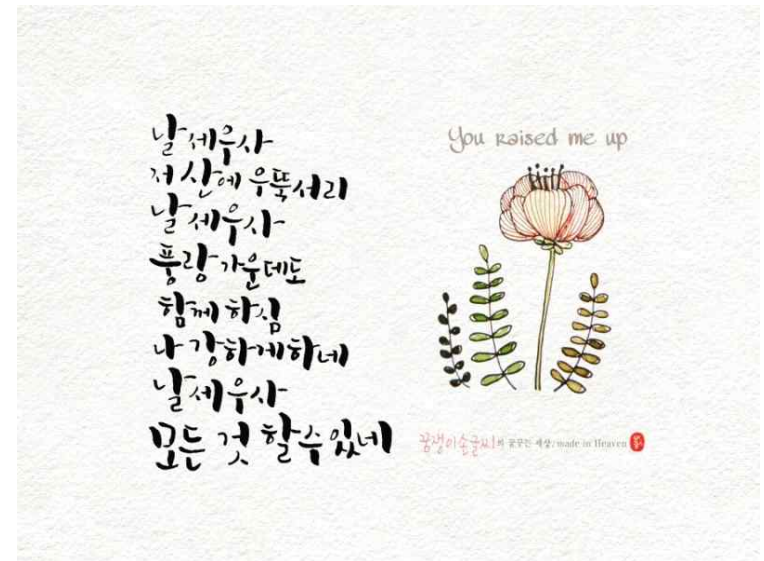 날 세우사
저 산에 우뚝서리
날 세우사
풍랑 가운데도
함께 하심
나 강하게하네
날 세우사
모든 것 할 수 있네
You raised me up
꿈쟁이손글씨의 꿈꾸는 세상/made in Heaven